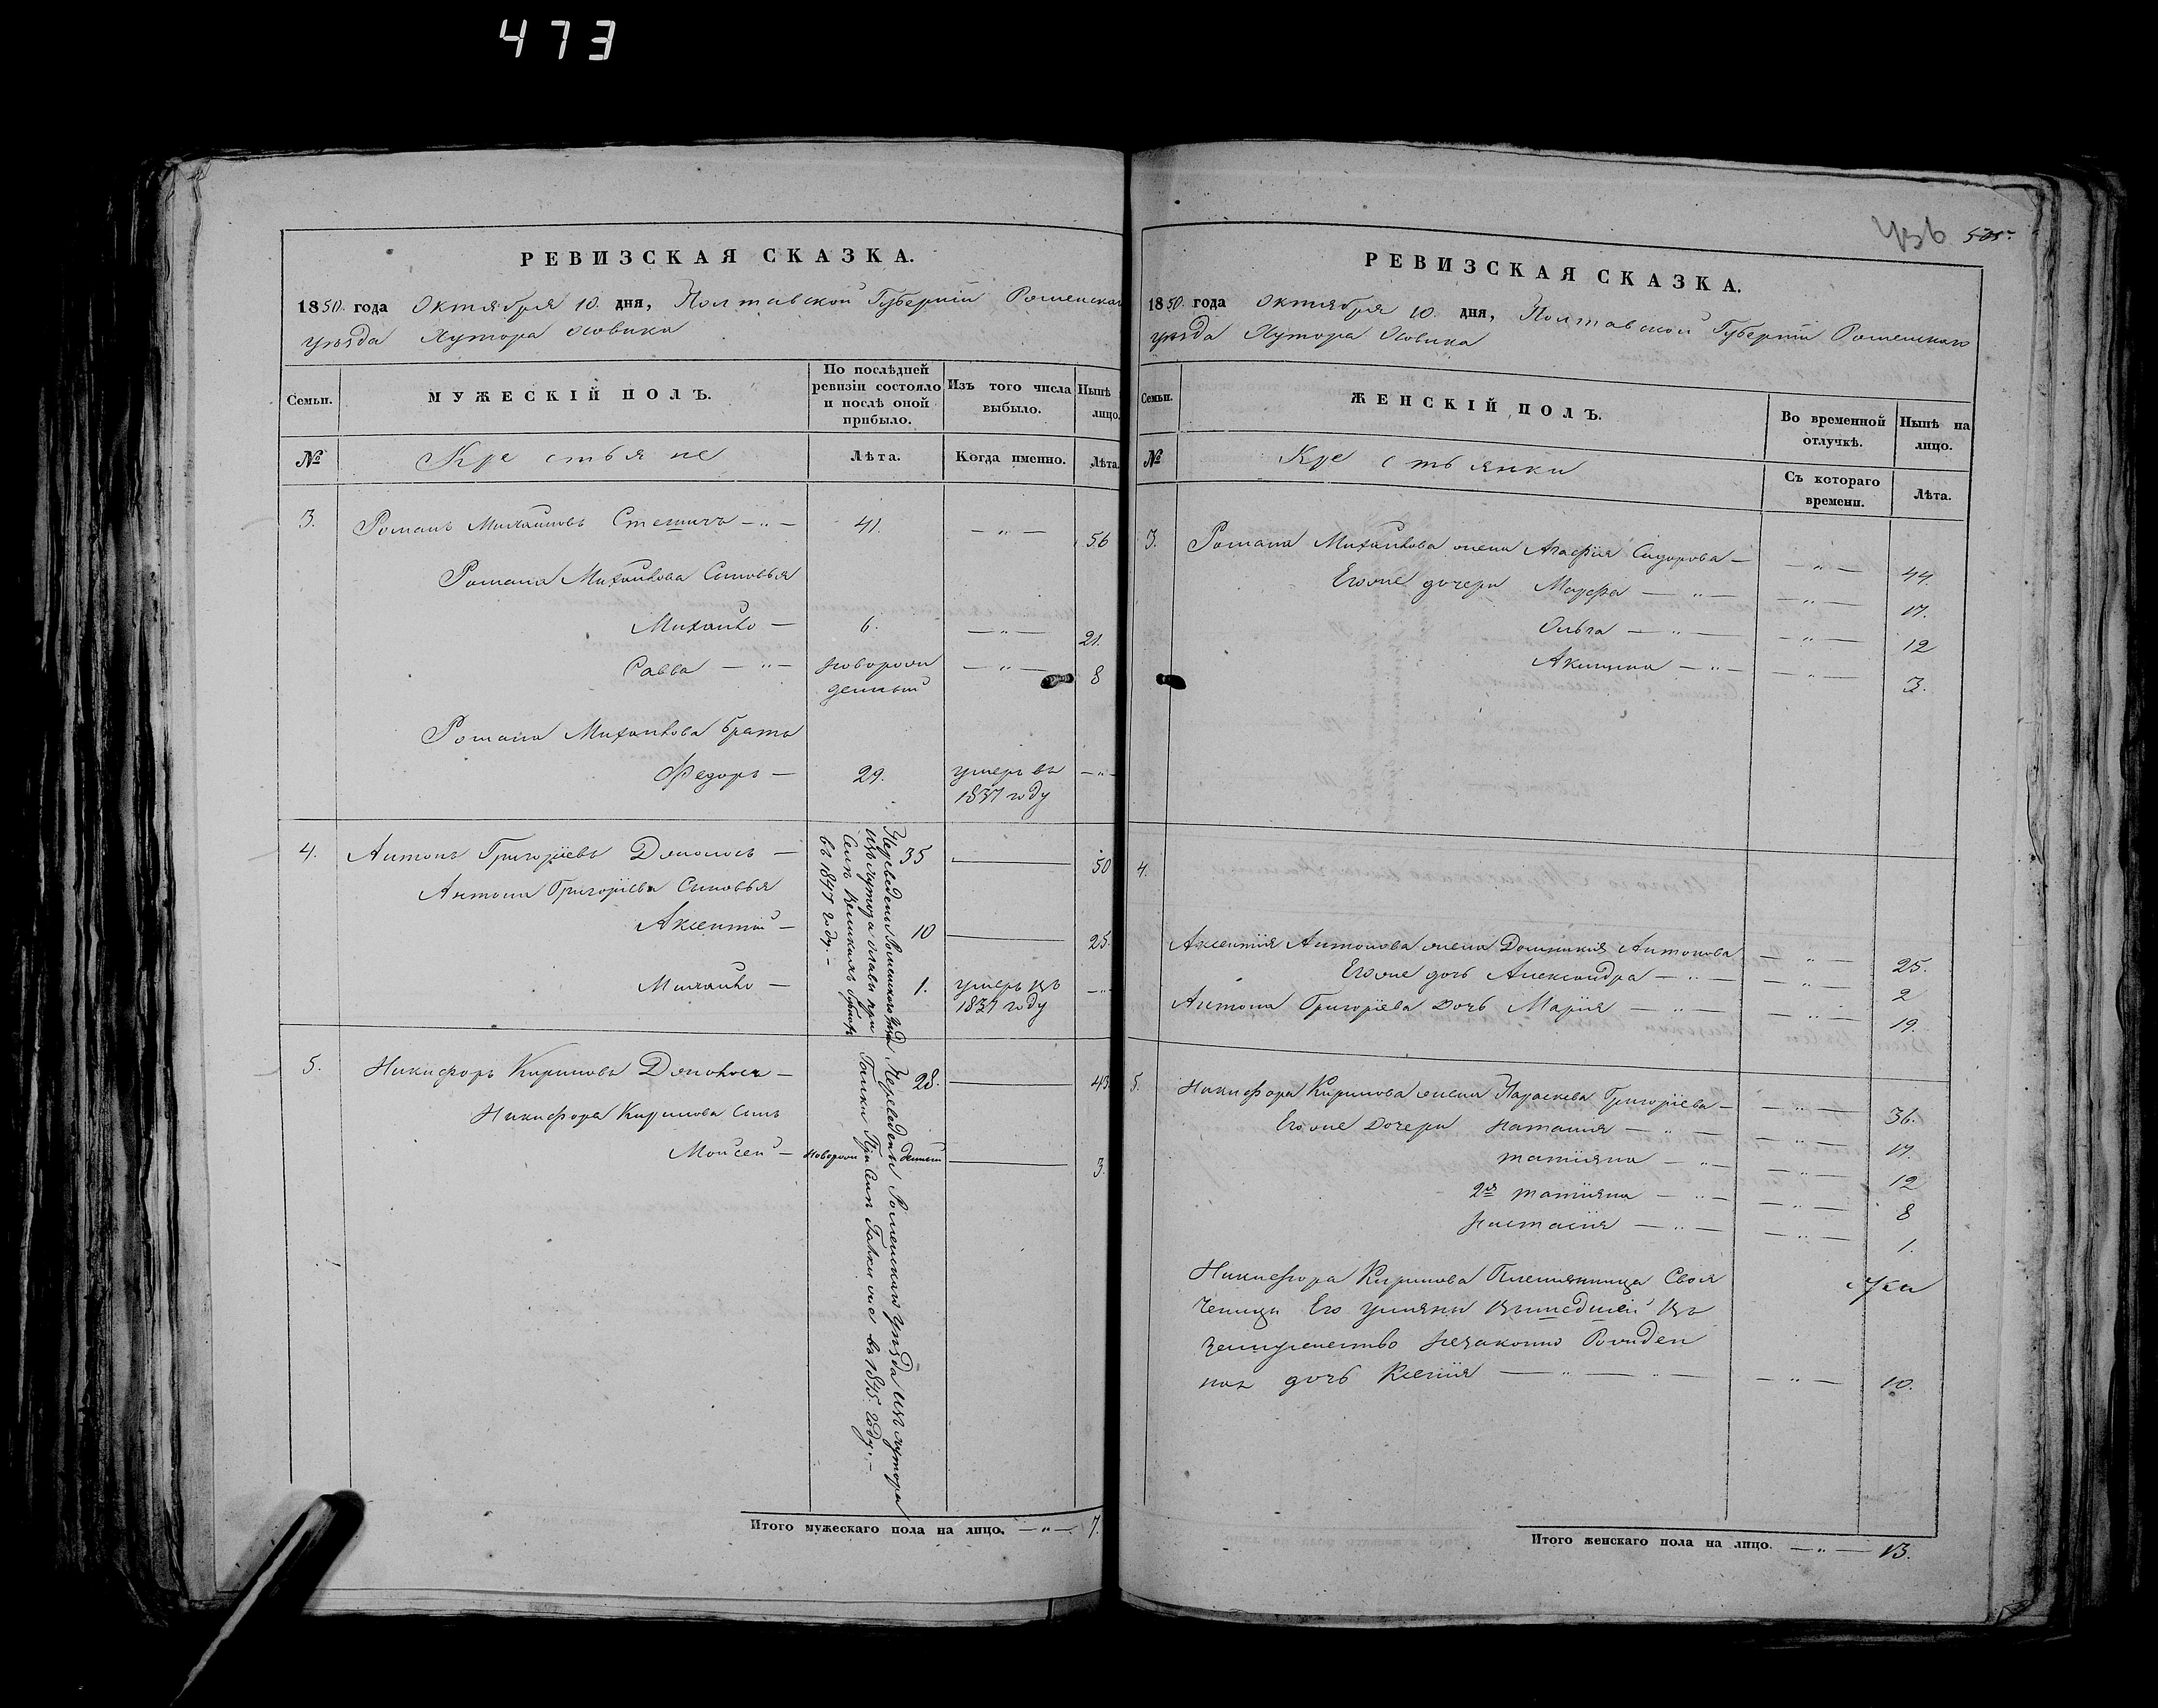 473
РЕВИЗСКАЯ СКАЗКА.
1850. года Октября 10. дня, Полтавской Губерніи Роменскаго
уѣзда Хутора Осовика
Семьи.
МУЖЕСКІЙ ПОЛЪ.
По послѣдней ревизіи состояло и послѣ оной прибыло.
Изъ того числа выбыло.
Нынѣ лицо.
№
Крестьяне
Лѣта.
Когда именно.
Лѣта.
3. Романъ Михайловъ — " — 41. — " — 56
Романа Михайлова Сыновья
Михайло — 6. — " — 21.
Савва — " — новорож — " — 8
денный
Романа Михайлова братъ
Федоръ — 29. умеръ въ — " —
1837 году
4. Антонъ Григоріевъ — 35 — 50
Антона Григоріева Сыновья
Аксентій — 10 — 25.
Михайло — 1. умеръ въ — " —
1837 году
Переведены Роменского уѣзда
изъ хутора при
Селѣ
въ 1847 году. —
5. Никифоръ Кириловъ — 28. — 43
Никифора Кирилова сынъ
Моисей — новорож денный — 3.
Переведены Роменского уѣзда изъ хутора
Галки При Селѣ Галки же въ 1845. году. —
Итого мужескаго пола на лицо. — " — 7.
436 505
РЕВИЗСКАЯ СКАЗКА.
1850. года Октября 10. дня, Полтавской Губерніи Роменскаго
уѣзда Хутора Осовика
Семьи.
ЖЕНСКІЙ ПОЛЪ.
Во временной отлучкѣ.
Нынѣ на лицо.
№
Крестьянки
Съ котораго времени.
Лѣта.
3. Романа Михайлова жена Агафія Сидорова — — " — 44.
Егоже дочери Марфа — " — — " — 17.
Ольга — " — — " — 12
Акилина — " — — " — 3.
4.
Аксентія Антонова жена Домникія Антонова — " — 25.
Егоже дочь Александра — " — — " — 2
Антона Григоріева Дочь Марія — " — — " — 19.
5. Никифора Кирилова жена Параскева Григоріева — — " — 36.
Егоже Дочери Наталія — " — — " — 17.
татіяна — " — — " — 12
2я татіяна — " — — " — 8
Настасія — " — — " — 1.
Никифора Кирилова Племянница Своя
ченицы Его Ульяны вышедшей въ
замужество незаконно Рожден
ная дочь Ксенія — " — " — — " — 10.
Итого женскаго пола на лицо. — " — 13.